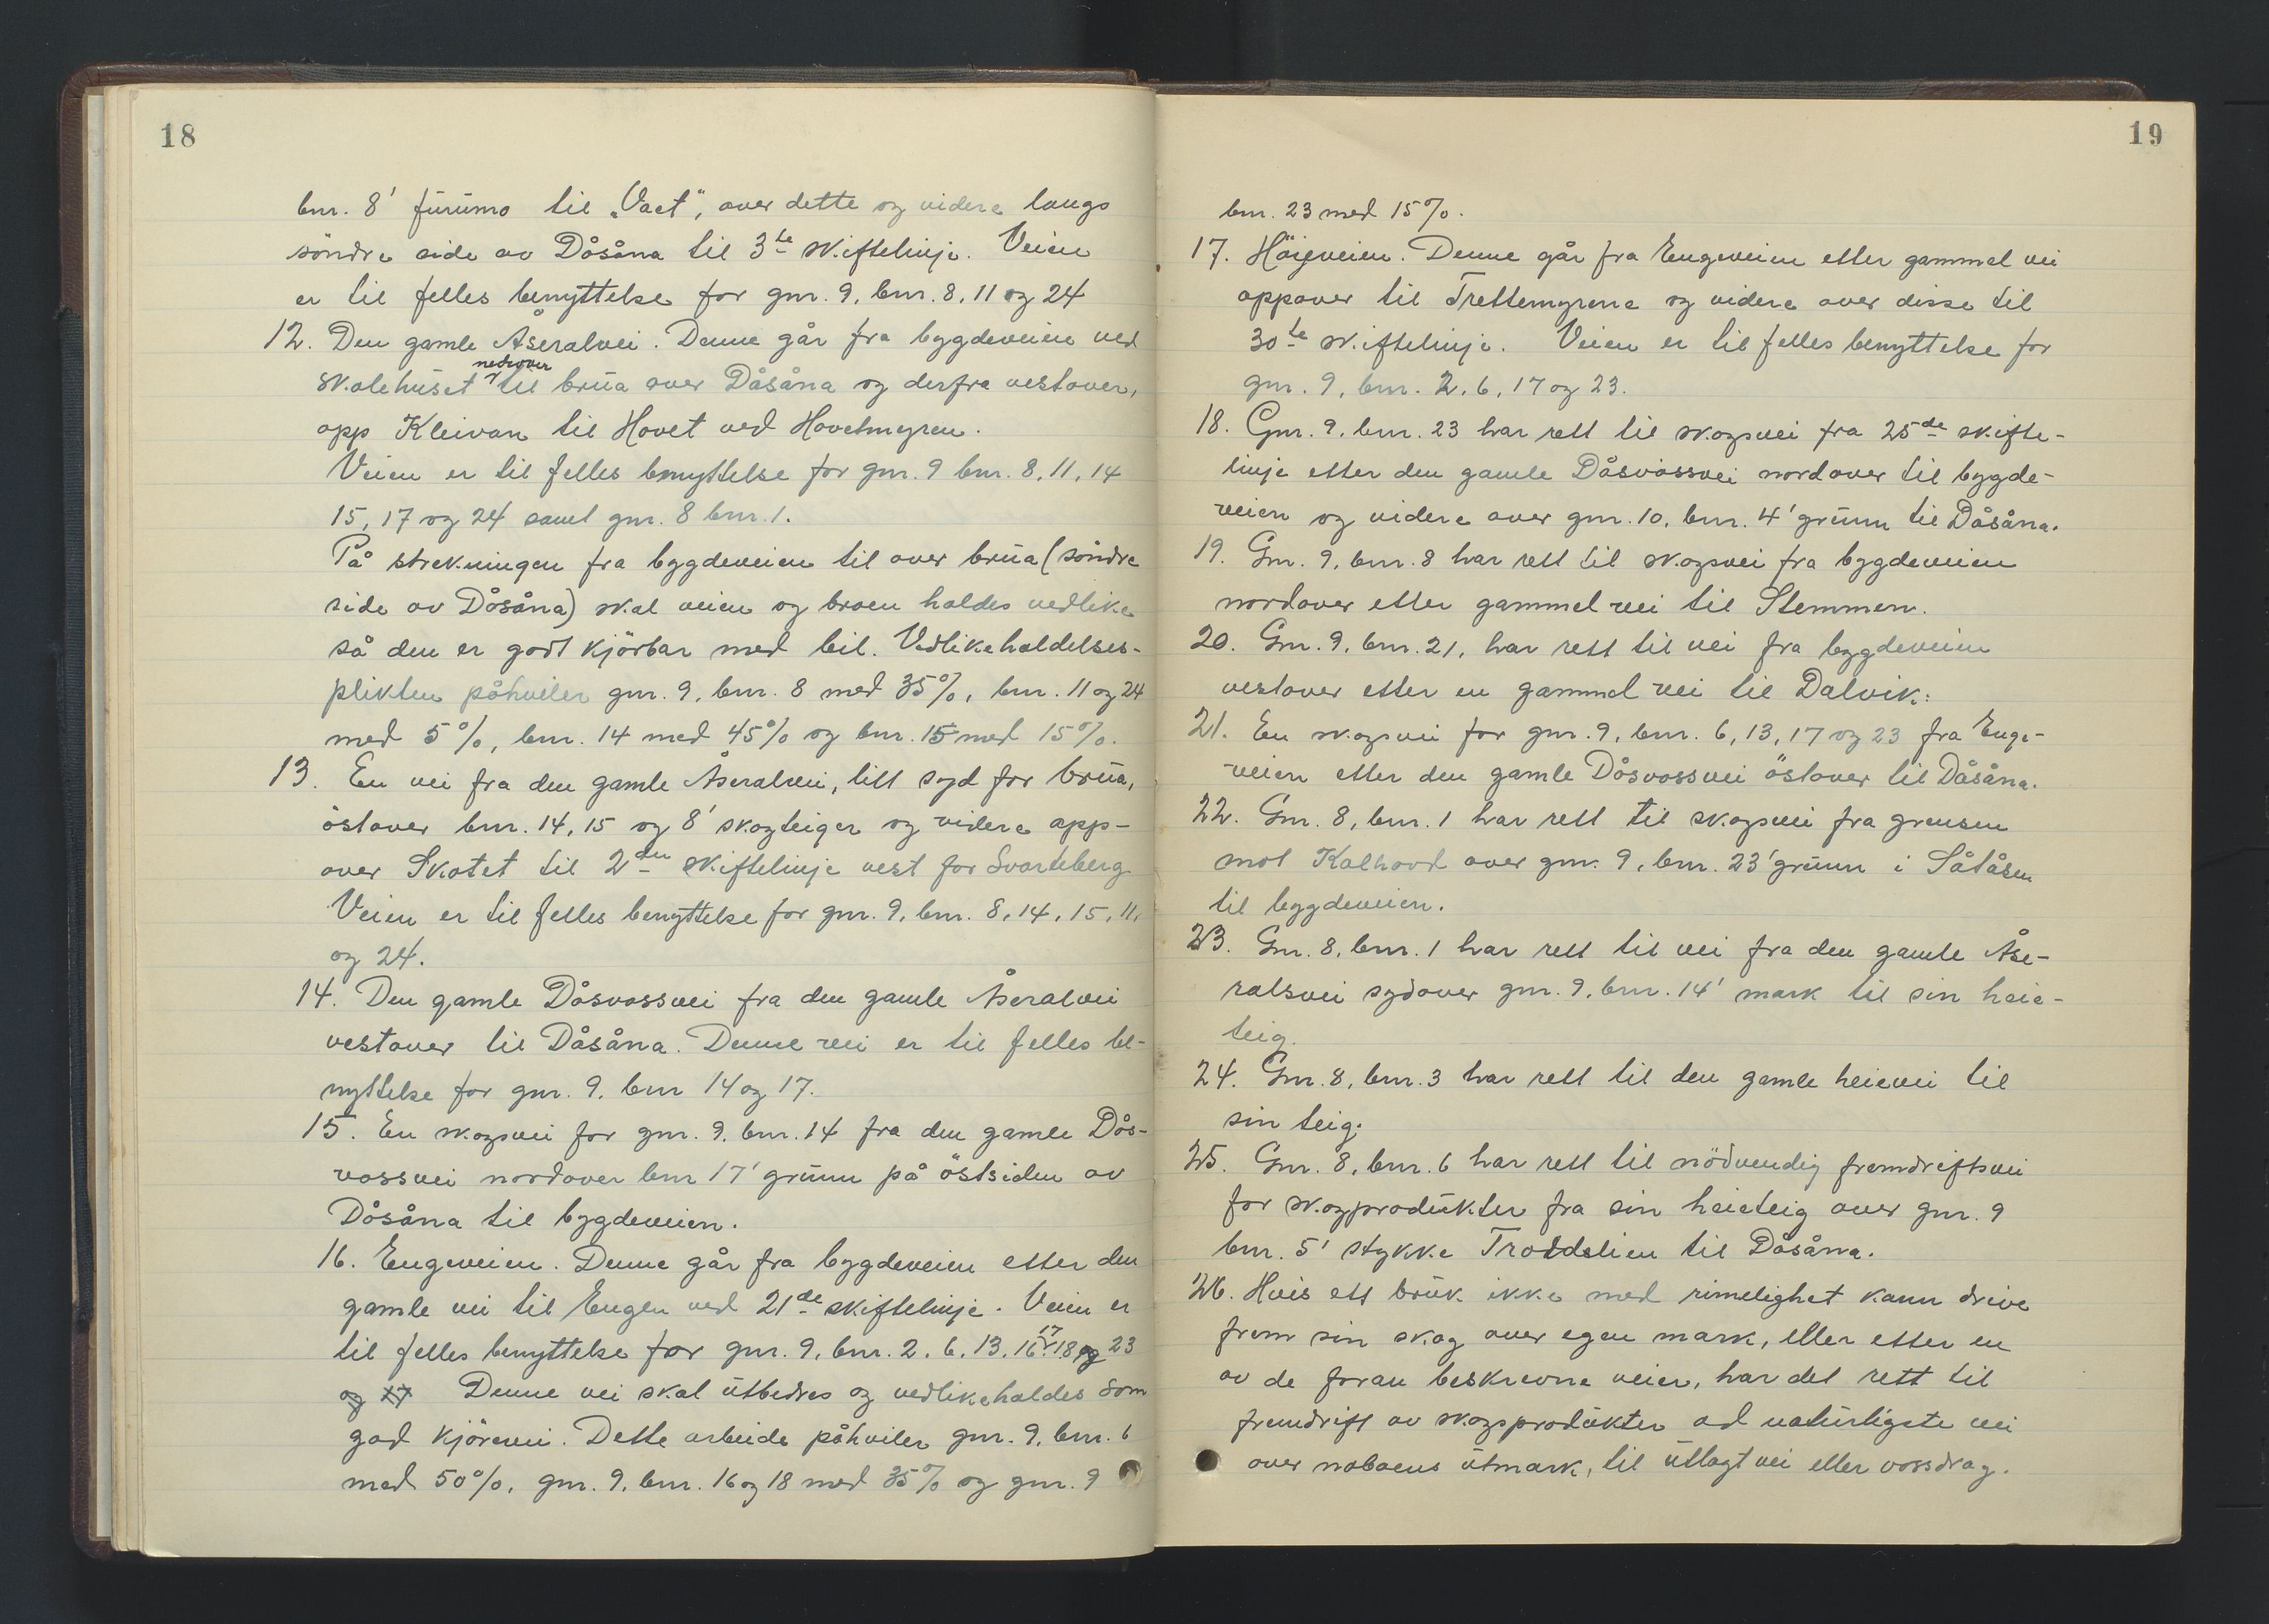 18
bnr. 8' furumo til „Vaet", over dette og videre langs
söndre side av Dåsåna til 3te skiftelinje. Veien
er til felles benyttelse for gnr. 9, bnr. 8, 11 og 24
12. Den gamle Åseralvei. Denne går fra bygdeveien ved
skolehuset nedover til brua over Dåsåna og derfra vestover,
opp Kleivan til Hovet ved Hovetmyren.
Veien er til felles benyttelse for gnr. 9 bnr. 8, 11, 14
15, 17 og 24 samt gnr. 8 bnr. 1.
På strekningen fra bygdeveien til over brua (söndre
side av Dåsåna) skal veien og broen holdes vedlike
så den er godt kjörbar med bil. Vedlikeholdelses-
plikten påhviler gnr. 9, bnr. 8 med 35%, bnr. 11 og 24
med 5%, bnr. 14 med 45% og bnr. 15 med 15%.
13. En vei fra den gamle Åseralvei, litt syd for brua,
östover bnr. 14, 15 og 8' skogteiger og videre opp-
over Skotet til 2den skiftelinje vest for Svarteberg
Veien er til felles benyttelse for gnr. 9, bnr. 8, 14, 15, 11,
og 24.
14. Den gamle Dåsvossvei fra den gamle Åseralvei
vestover til Dåsåna. Denne vei er til felles be-
nyttelse for gnr. 9, bnr 14 og 17.
15. En skogsvei for gnr. 9, bnr. 14 fra den gamle Dås-
vossvei nordover bnr 17' grunn på östsiden av
Dåsåna til bygdeveien.
16. Engeveien. Denne går fra bygdeveien etter den
gamle vei til Engen ved 21de skiftelinje. Veien er
til felles benyttelse for gnr. 9, bnr. 2, 6, 13, 16, 17 18 og 23
og 17 Denne vei skal utbedres og vedlikeholdes som
god kjörevei. Dette arbeide påhviler gnr. 9, bnr. 6
med 50%, gnr. 9, bnr. 16 og 18 med 35% og gnr. 9
19
bnr. 23 med 15%.
17. Höijeveien. Denne går fra Engeveien etter gammel vei
oppover til Trettemyrene og videre over disse til
30te skiftelinje. Veien er til felles benyttelse for
gnr. 9, bnr. 2, 6, 17 og 23.
18. Gnr. 9, bnr. 23 har rett til skogsvei fra 25de skifte-
linje etter den gamle Dåsvossvei nordover til bygde-
veien og videre over gnr. 10, bnr. 4' grunn til Dåsåna.
19. Gnr. 9, bnr. 8 har rett til skogsvei fra bygdeveien
nordover etter gammel vei til Stemmen.
20. Gnr. 9, bnr. 21, har rett til vei fra bygdeveien
vestover etter en gammel vei til Dalvik.
21. En skogsvei for gnr. 9, bnr. 6, 13, 17 og 23 fra Enge-
veien etter den gamle Dåsvossvei östover til Dåsåna.
22. Gnr. 8, bnr. 1 har rett til skogsvei fra grensen
mot Kalhovd over gnr. 9, bnr. 23' grunn i Såtåsen
til bygdeveien.
23. Gnr. 8, bnr. 1 har rett til vei fra den gamle Åse-
ralsvei sydover gnr. 9, bnr. 14' mark til sin heie-
teig.
24. Gnr. 8, bnr. 3 har rett til den gamle heievei til
sin teig.
25. Gnr. 8, bnr. 6 har rett til nödvendig fremdriftsvei
for skogprodukter fra sin heieteig over gnr. 9
bnr. 5' stykke Troddslien til Dåsåna.
26. Hvis ett bruk ikke med rimelighet kann drive
frem sin skog over egen mark, eller etter en
av de foran beskrevne veier, har det rett til
fremdrift av skogsprodukter ad naturligste vei
over naboens utmark, til utlagt vei eller vossdrag.